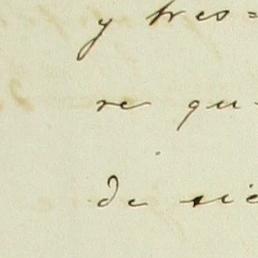 y tres=
re qu
de sie